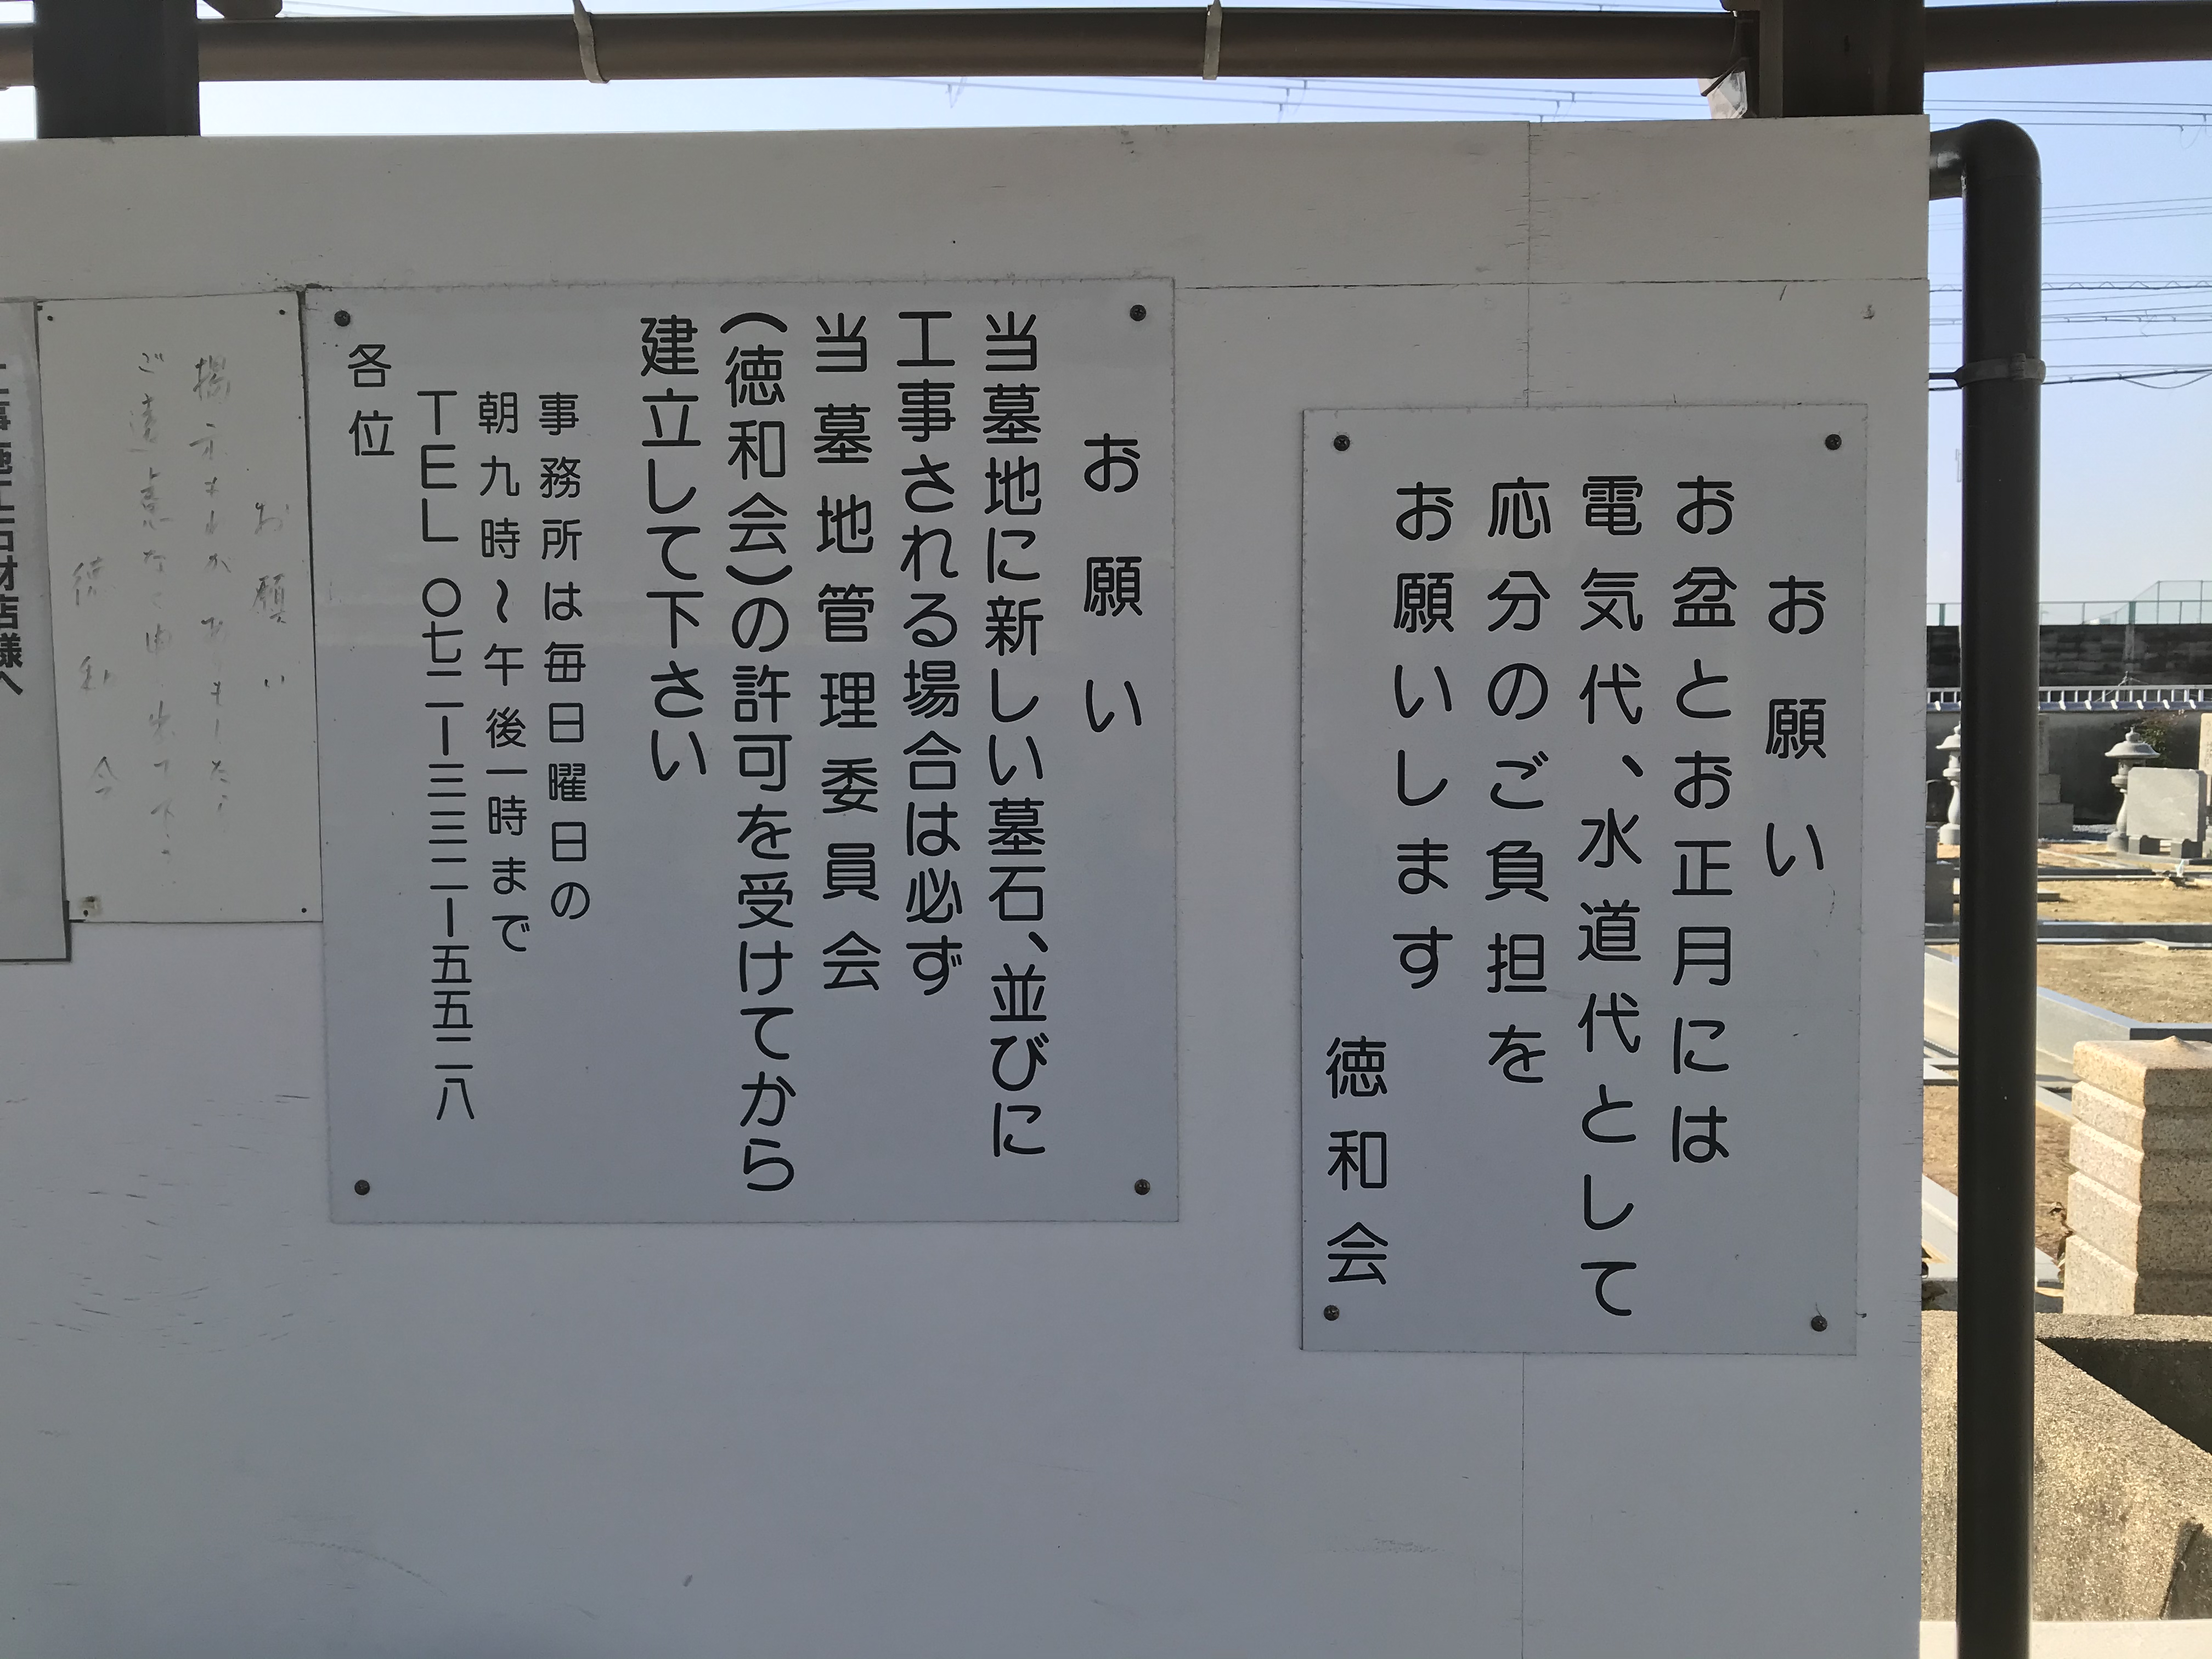 お願い
お盆とお正月には
電気代、水道代として
応分のご負担を
お願いします
徳和会
お願い
当墓地に新しい墓石、並びに
工事される場合は必ず
当墓地管理委員会
(徳和会)の許可を受けてから
建立して下さい
事務所は毎日曜日の
朝九時~午後一時まで
TEL 〇七二ー三三二ー五五二八
各位
お願い
掲示
ご遠慮なく申し出て下
徳和会
工事施工石材店様へ